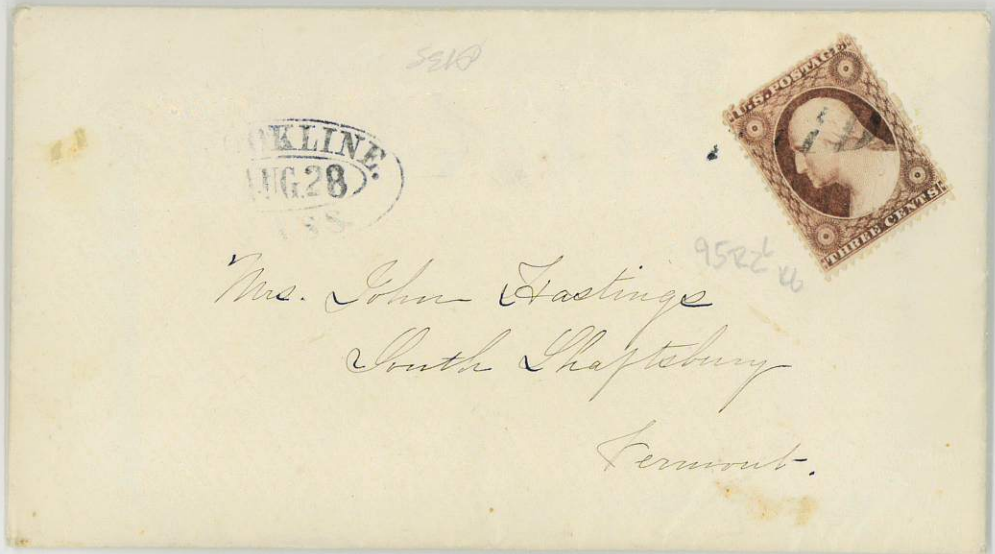 OOKLINE.
AUG. 28
ASS.
U.S. POSTAGE
THREE CENTS
Mrs. John Hastings
South Shaftsbury
Vermont.